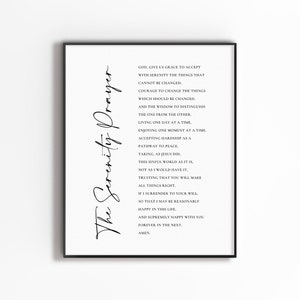 The Serenity Prayer
GOD, GIVE US GRACE TO ACCEPT
WITH SERENITY THE THINGS THAT
CANNOT BE CHANGED,
COURAGE TO CHANGE THE THINGS
WHICH SHOULD BE CHANGED,
AND THE WISDOM TO DISTINGUISH
THE ONE FROM THE OTHER.
LIVING ONE DAY AT A TIME,
ENJOYING ONE MOMENT AT A TIME,
ACCEPTING HARDSHIP AS A
PATHWAY TO PEACE,
TAKING, AS JESUS DID,
THIS SINFUL WORLD AS IT IS,
NOT AS I WOULD HAVE IT,
TRUSTING THAT YOU WILL MAKE
ALL THINGS RIGHT,
IF I SURRENDER TO YOUR WILL,
SO THAT I MAY BE REASONABLY
HAPPY IN THIS LIFE,
AND SUPREMELY HAPPY WITH YOU
FOREVER IN THE NEXT.
AMEN.